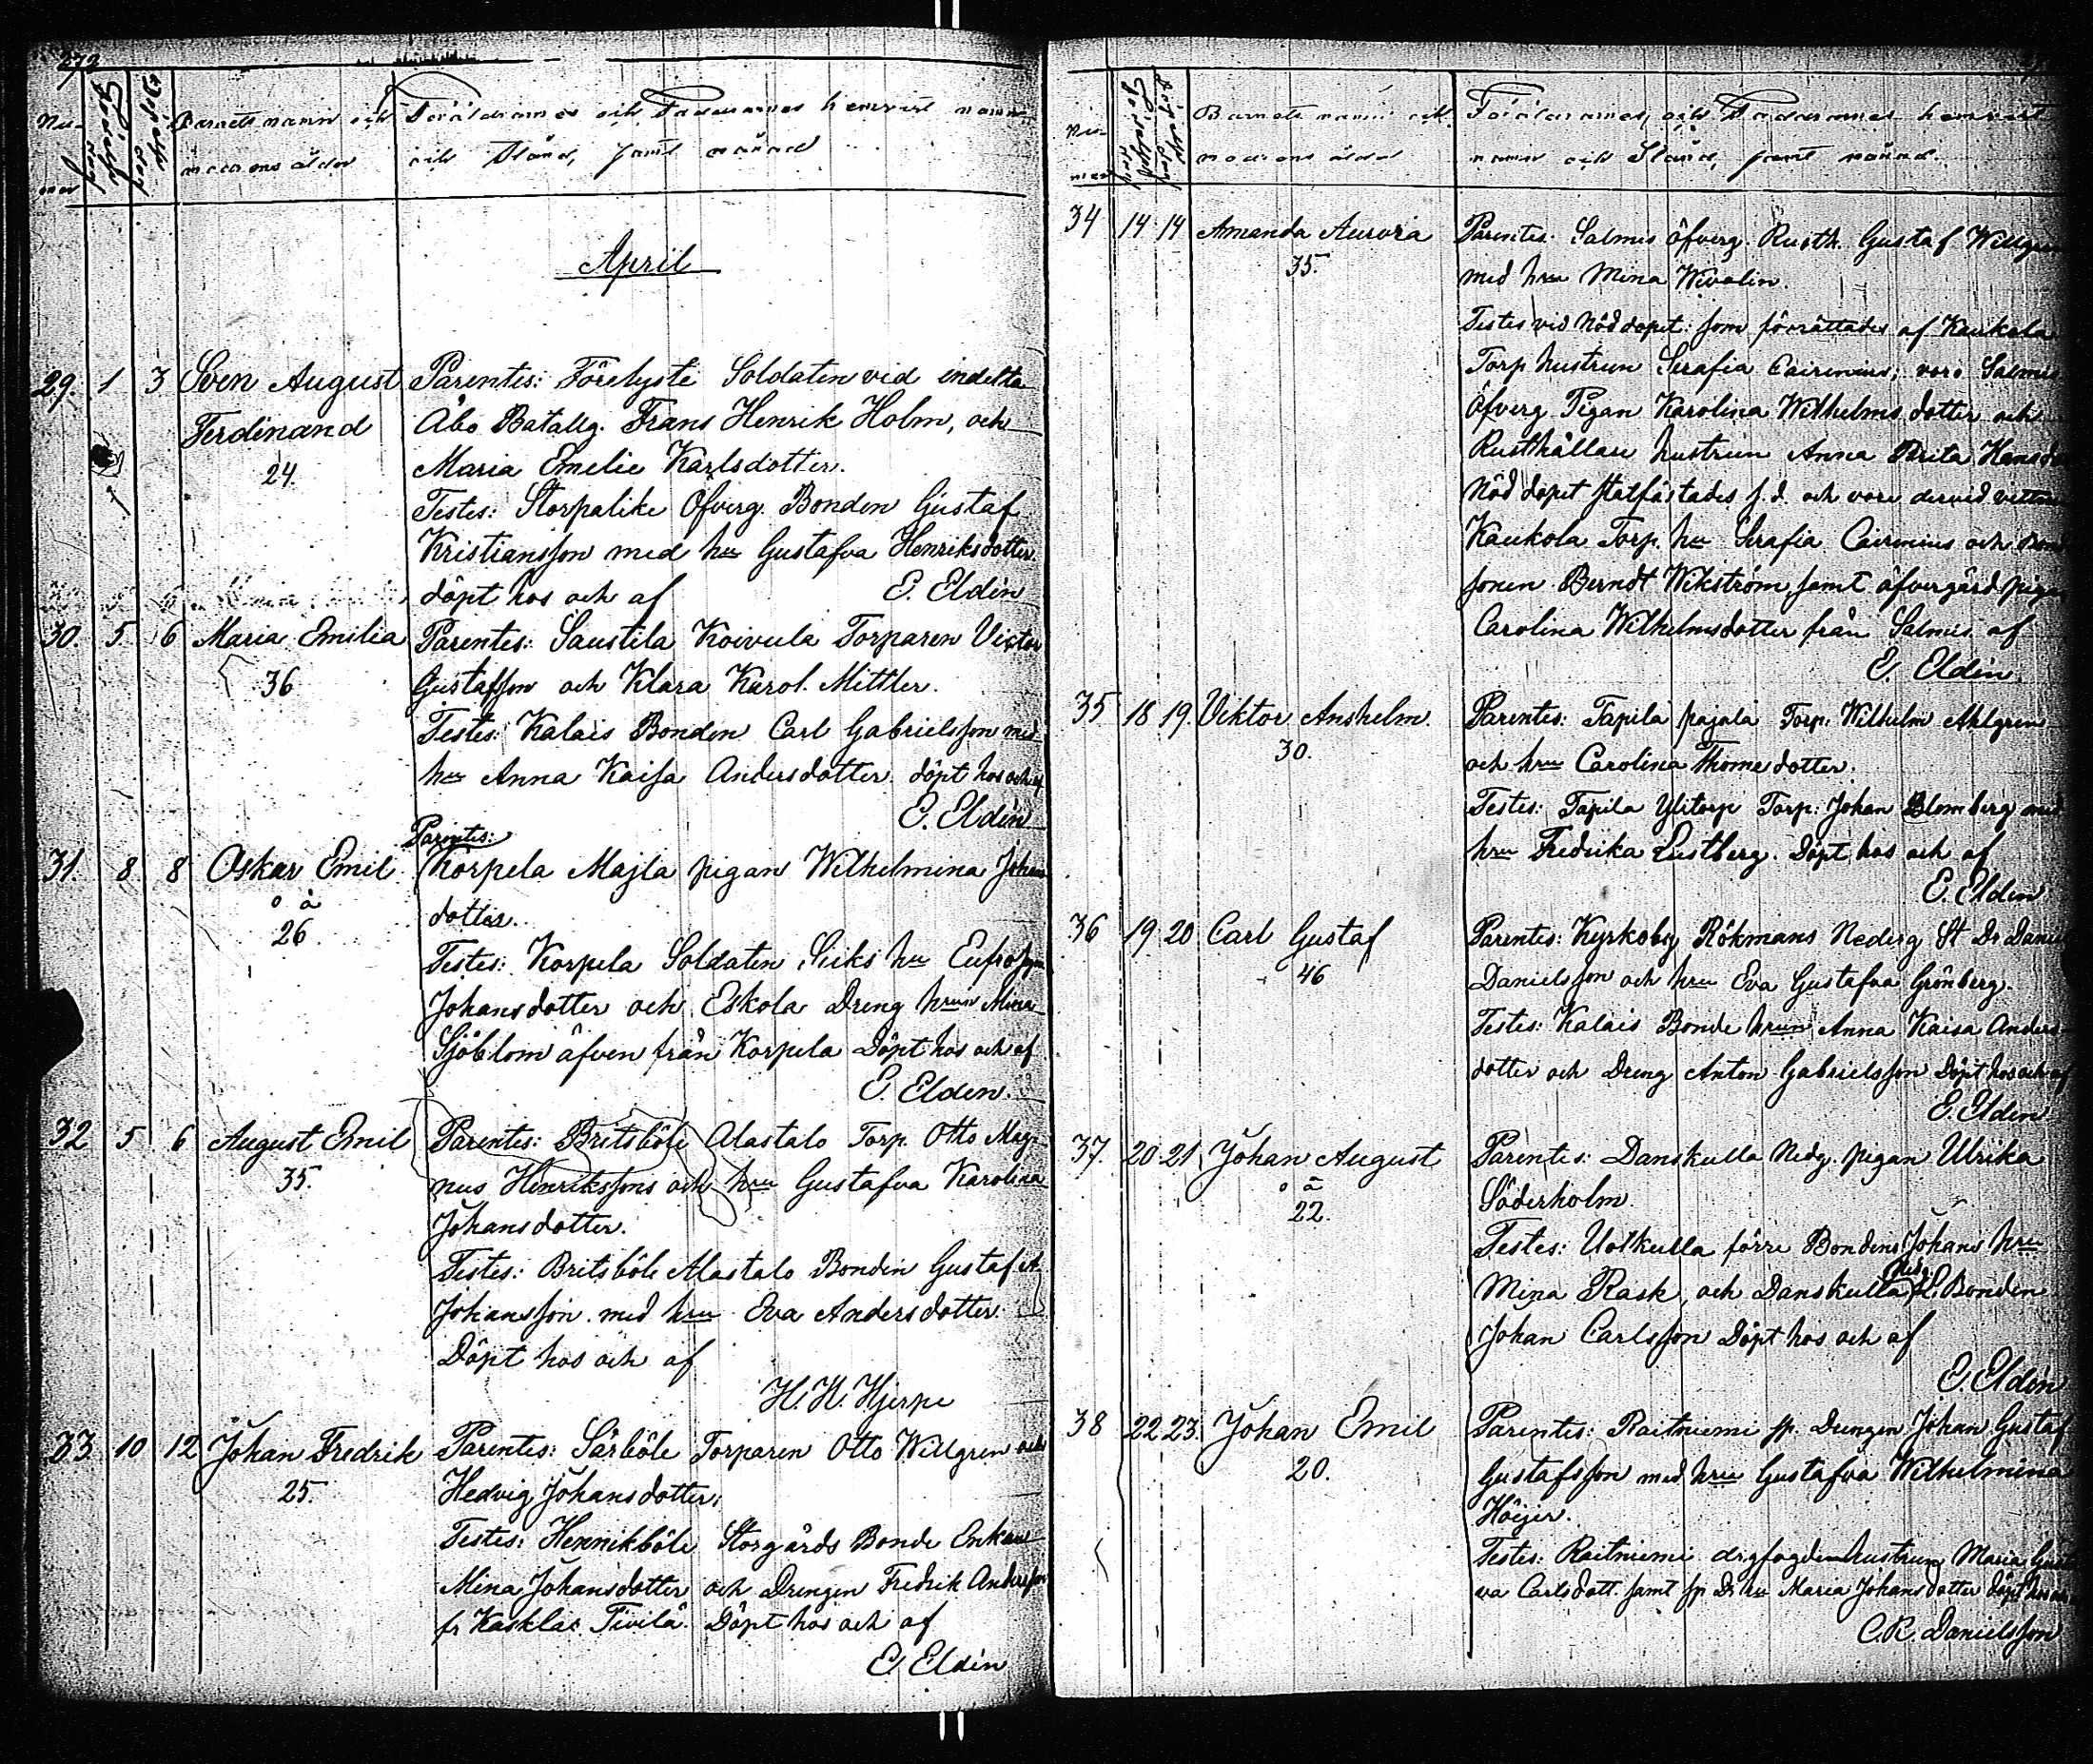 272
Nu-
mer
Födelse dag
Döpelse dag
Barnets namn och
modrens ålder
Föräldrarnes och Faddrarnes hemvist namn
och Stånd, samt månad
April
29. 1 3 Sven August
Ferdinand
24.
Parentes: Förelyste Soldaten vid indelta
Åbo Batallj. Frans Henrik Holm, och
Maria Emelie Karlsdotter.
Testes: Storpalike Öfverg. Bonden Gustaf
Kristiansson med hu Gustafva Henriksdotter.
döpt hos och af E. Eldén
30. 5. 6 Maria Emilia
36
Parentes: Saustila Koivula Torparen Victor
Gustafsson och Klara Karol. Mittler.
Testes: Kalais Bonden Carl Gabrielsson med
hu Anna Kaisa Andersdotter. döpt hos och af
E. Eldén
31. 8 8 Oskar Emil
o ä
26.
Parentes:
Korpela Majla pigan Wilhelmina Johans
dotter.
Testes: Korpela Soldaten Siiks hu Eufrosyna
Johansdotter och Eskola Dreng hrun Mina
Sjöblom äfven från Korpela Döpt hos och af
E. Eldén.
32 5 6 August Emil
35.
Parentes: Britsböle Alastalo Torp. Otto Mag-
nus Henrikssons och hru Gustafva Karolina
Johansdotter.
Testes: Britsböle Alastalo Bonden Gustaf A.
Johansson med hru Eva Andersdotter.
Döpt hos och af
H. H. Hjerpe
33 10 12 Johan Fredrik
25.
Parentes: Särböle Torparen Otto Willgren och
Hedvig Johansdotter.
Testes: Hennikböle Storgårds Bonde Enkan
Mina Johansdotter och Drengen Fredrik Andersson
fr Kasklas Tivilä. Döpt hos och af
E. Eldén
Nu-
mer
Födelse dag
Döpelse dag
Barnets namn och
modrens ålder
Föräldrarnes, och Faddrarnes hemvist
namn och Stånd, samt månad.
34 14 14 Amanda Aurora
35.
Parentes: Salmis Öfverg. Rusth. Gustaf Willgren
med hru Mina Wivolin.
Testes vid Nöddopet: som förrättades af Kaukola
Torp hustrun Serafia Cairenius; voro Salmis
Öfverg. Pigan Karolina Wilhelms dotter och
Rusthållare hustrun Anna Brita Hansd
Nöd dopet statfästades s. d. och voro dervid vittne
Kaukola Torp. hu Serafia Cairenius och Bond
sonen Berndt Wikström samt öfvergård pigan
Carolina Wilhelmsdotter från Salmis. af
E. Eldén.
35 18 19. Viktor Anshelm.
30.
Parentes: Tapila pajala Torp. Wilhelm Ahlgren
och hru Carolina Thomedotter.
Testes: Tapila Ylitorp Torp: Johan Blomberg med
hru Fredrika Lustberg. Döpt hos och af
E. Eldén
36 19 20 Carl Gustaf
46
Parentes: Kyrkoby Rökmans Nederg St Dr Daniel
Danielsson och hru Eva Gustafva Grönberg.
Testes: Kalais Bonde hrun Anna Kaisa Anders
dotter och Dreng Anton Gabrielsson Döpt hos och af
E. Eldén
37. 20 21. Johan August
o ä
22.
Parentes: Danskulla Nedg. pigan Ulrika
Söderholm.
Testes: Uotkulla förre Bondens Johans hru
Mina Rask, och Danskulla Bonden
Johan Carlsson Döpt hos och af
E. Eldén
38 22 23. Johan Emil
20.
Parentes: Raitniemi sp. Drengen Johan Gustaf
Gustafsson med hru Gustafva Wilhelmina
Höijer.
Testes: Raitniemi hustrun Maria Gusta
va Carlsdott. samt sp Dr hu Maria Johansdotter döpt hos
C. R. Danielsson